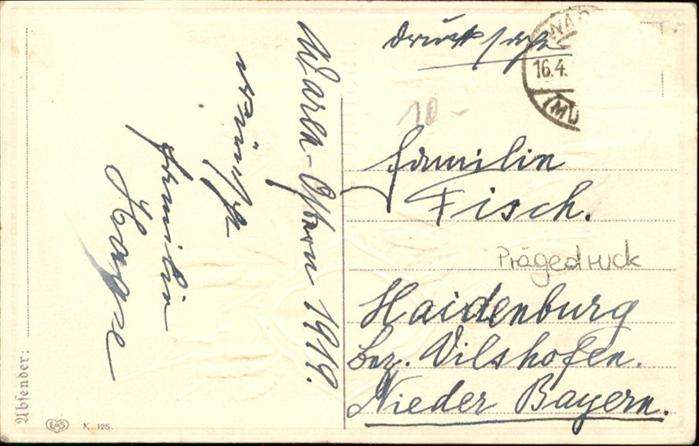 Drucksache
WAR
16.4.
(MÜ
10-
Familie
Fisch.
Prägedruck
Haidenburg
bez. Vilshofen.
Nieder Bayern.
Waren-Ostern 1919.
wünscht
familie
Absender:
EAS
K. 126.